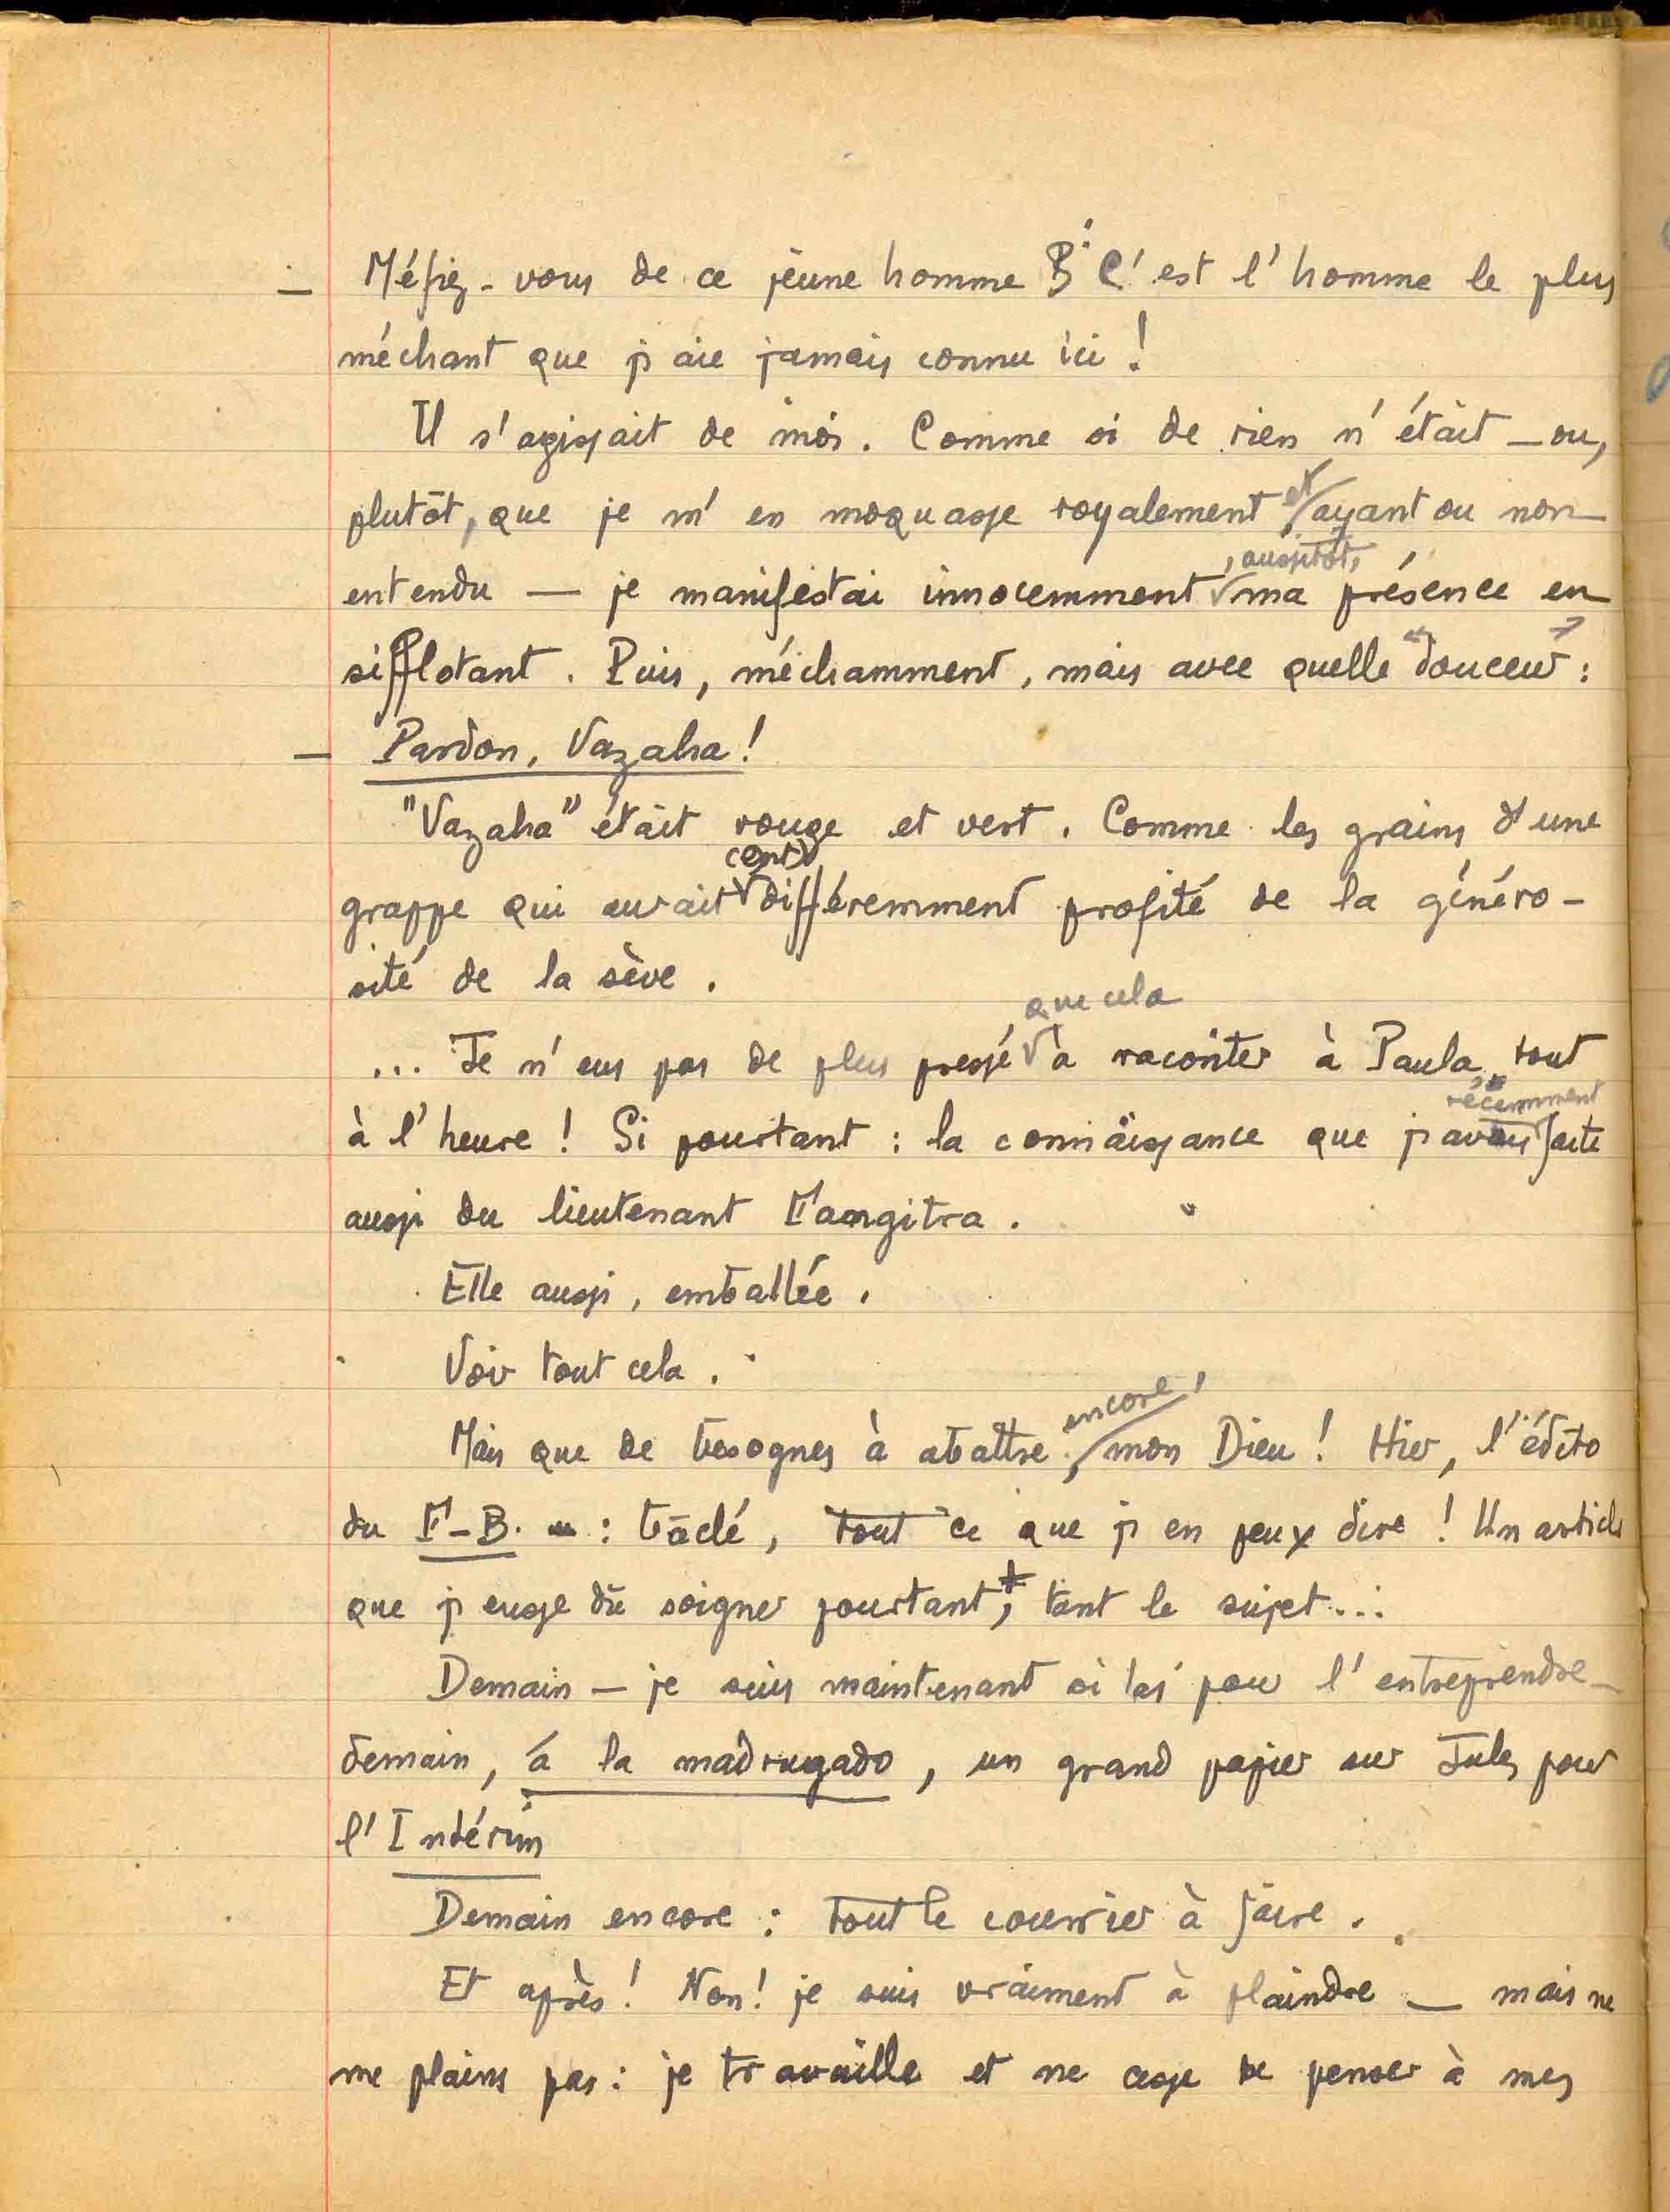 — Méfiez-vous de ce jeune homme ! C'est l'homme le plus
méchant que j'aie jamais connu ici !
Il s'agissait de moi. Comme si de rien n'était — ou,
plutôt, que je m'en moquasse royalement et ayant ou non
entendu — je manifestai innocemment, aussitôt, ma présence en
sifflotant. Puis, méchamment, mais avec quelle douceur :
— Pardon, Vazaha !
"Vazaha" était rouge et vert. Comme les grains d'une
grappe qui aurait (ent) différemment profité de la généro-
sité de la sève.
... Je n'eus pas de plus pressé que cela à raconter à Paula, tout
à l'heure ! Si pourtant : la connaissance que j'avais récemment faite
aussi du lieutenant
Elle aussi, emballée.
Voir tout cela.
Mais que de besognes à abattre encore, mon Dieu ! Hier, l'édito
du F-B. : bâclé, tout ce que j'en peux dire ! Un article
que j'eusse dû soigner pourtant, tant le sujet...
Demain — je suis maintenant si las pour l'entreprendre —
demain, à la madrugado, un grand papier sur Jules pour
l'Intérim
Demain encore : tout le courrier à faire.
Et après ! Non ! je suis vraiment à plaindre — mais ne
me plains pas : je travaille et ne cesse de penser à mes